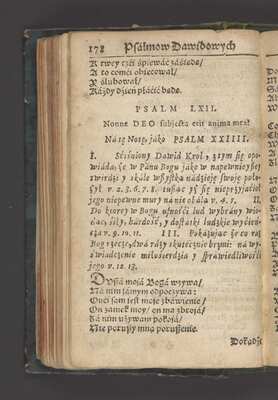 178 Psalmow Dawidowych
K twey czći śpiewáć záśiędę/
A to comći obiecował/
Y ślubował/
Káżdy dzień płáćić będę.
PSALM LXII.
Nonne DEO subjecta erit anima mea?
Ná tę Notę, jáko PSALM XXIIII.
I. Sćiśniony Dawid Krol, z tym się opo-
wiáda, że w Pánu Bogu jáko w napewnieyszey
twierdzy y skále wszystkę nádzieję swoję poło-
żył v. 2. 3. 6. 7. 8. tusząc że się nieprzyjaćiel
jego niepewne mury na nie obala v. 4. 5. II.
Do ktorey w Bogu ufnośći lud wybrány wio-
dąc, śiły, hárdość, y dostátki ludzkie wyćień-
cza v. 9. 10. 11. III. Pokázując że co raz
Bog rzecze, dwá rázy skutecznie brzmi: ná wy-
świádczenie miłośierdzia y spráwiedliwośći
jego v. 12. 13.
Duszá mojá Bogá wzywa/
Ná nim sámym odpoczywa:
Onći sam jest moje zbáwienie/
On zamek moy/ on má zbroją/
Zá nim używam pokoju/
Nie poruszy mną poruszenie.
Dokądże